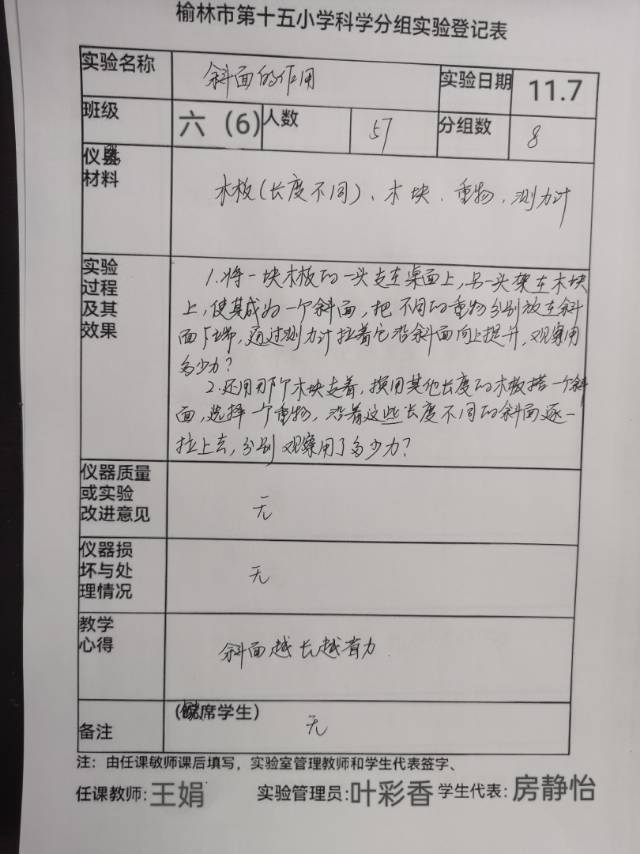 榆林市第十五小学科学分组实验登记表
实验名称 斜面的作用 实验日期 11.7
班级 六（6） 人数 57 分组数 8
仪器
材料
木板(长度不同)、木块、重物、测力计
实验
过程
及其
效果
1.将一块木板的一头支在桌面上,另一头架在木块
上,使其成为一个斜面,把不同的重物分别放在斜
面下端,通过测力计拉着它沿斜面向上提升,观察用
多少力?
2.还用那个木块支着,换用其他长度的木板搭一个斜
面,选择一个重物,沿着这些长度不同的斜面逐一
拉上去,分别观察用了多少力?
仪器质量
或实验
改进意见
无
仪器损
坏与处
理情况
无
教学
心得
斜面越长越有力
备注
席学生）
无
注：由任课敏师课后填写，实验室管理教师和学生代表签字、
任课教师：王娟 实验管理员：叶彩香 学生代表：房静怡